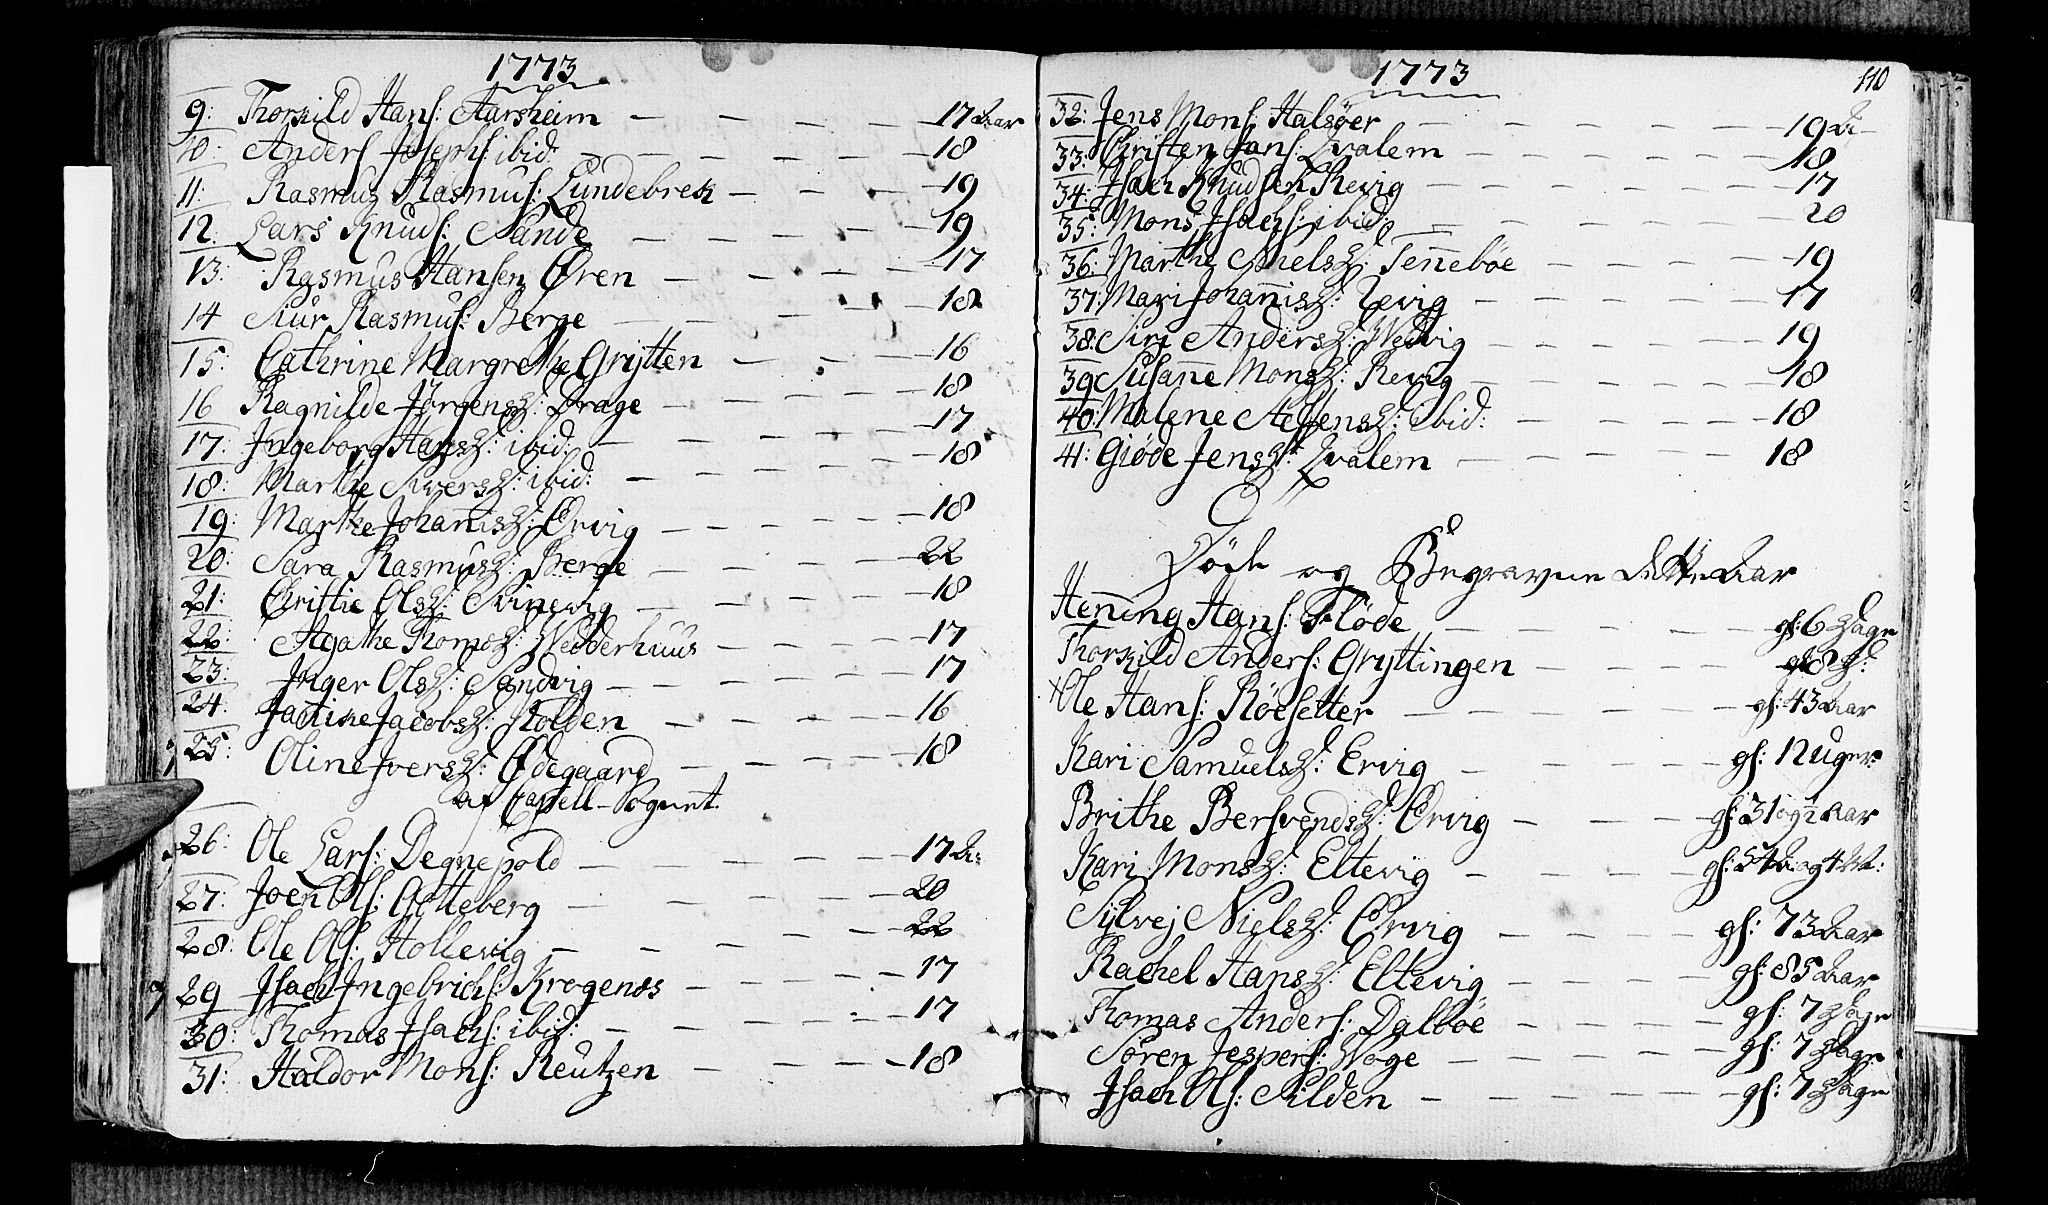 1773
9: Thorkild Hans: Aarsheim 17 Aar
10: Anders Josephs: ibid: 18
11: Rasmus Rasmus: Lundebrek 19
12. Lars Knuds: Sande 19
13: Rasmus Hansen Øren 17
14 Siur Rasmus: Berge 18
15: Cathrine Margrethe Grytten 16
16 Ragnilde Jørgensd: Drage 18
17: Ingeborg Hansd: ibid: 17
18: Marthe Siversd: ibid: 18
19: Marthe Johannisd: Ervig 18
20: Sara Rasmusd: Berge 22
21: Christie Olsd: Svinevig 18
22: Agathe Thomsd: Wedderhuus 17
23: Inger Olsd: Sandvig 17
24. Jacobsd: Stolden 16
25: Oline Iversd: Ødegaard 18
af Capell-Sognet.
26: Ole Lars: Degnepold 17 A:
27: Joen Ols: Gotteberg 20
28: Ole Ols: Hollevig 22
29 Isach Ingebrichs: Kragenes 17
30: Thomas Isachs: ibid: 17
31: Haldor Mons: Reutzen 18
1773
110
32: Jens Mons: Halsøer 19 A
33: Christen Jans: Qvalem 18
34: Isach Knudsen Revig 17
35: Mons Isachs: ibid: 20
36: Marthe Nielsd: Tennebøe 19
37: Mari Johannisd: Revig 17
38: Siri Andersd: Wedvig 19
39 Susanne Monsd: Revig 18
40: Malene d: ibid: 18
41: Giøde Jensd: Qvalem 18
Døde og Begravne dette Aar
Henning Hans: Fløde gl: 6 Dage
Thorkild Anders: Gryttingen gl: 8 D:
Ole Hans: Røesetter gl: 43 Aar
Kari Samuelsd: Ervig gl: 12 Uger
Brithe Bersvendsd: Ervig gl: 31 og ½ Aar
Kari Monsd: Eltevig gl: 57 A: og 4 M:
Sylvej Nielsd: Ervig gl: 73 Aar
Rachel Hansd: Eltevig gl: 85 Aar
Thomas Anders: Dalbøe gl: 7 Dage
Søren Jespers: Woge gl: 7 Dage
Isach Ols: Silden gl: 7 Dage